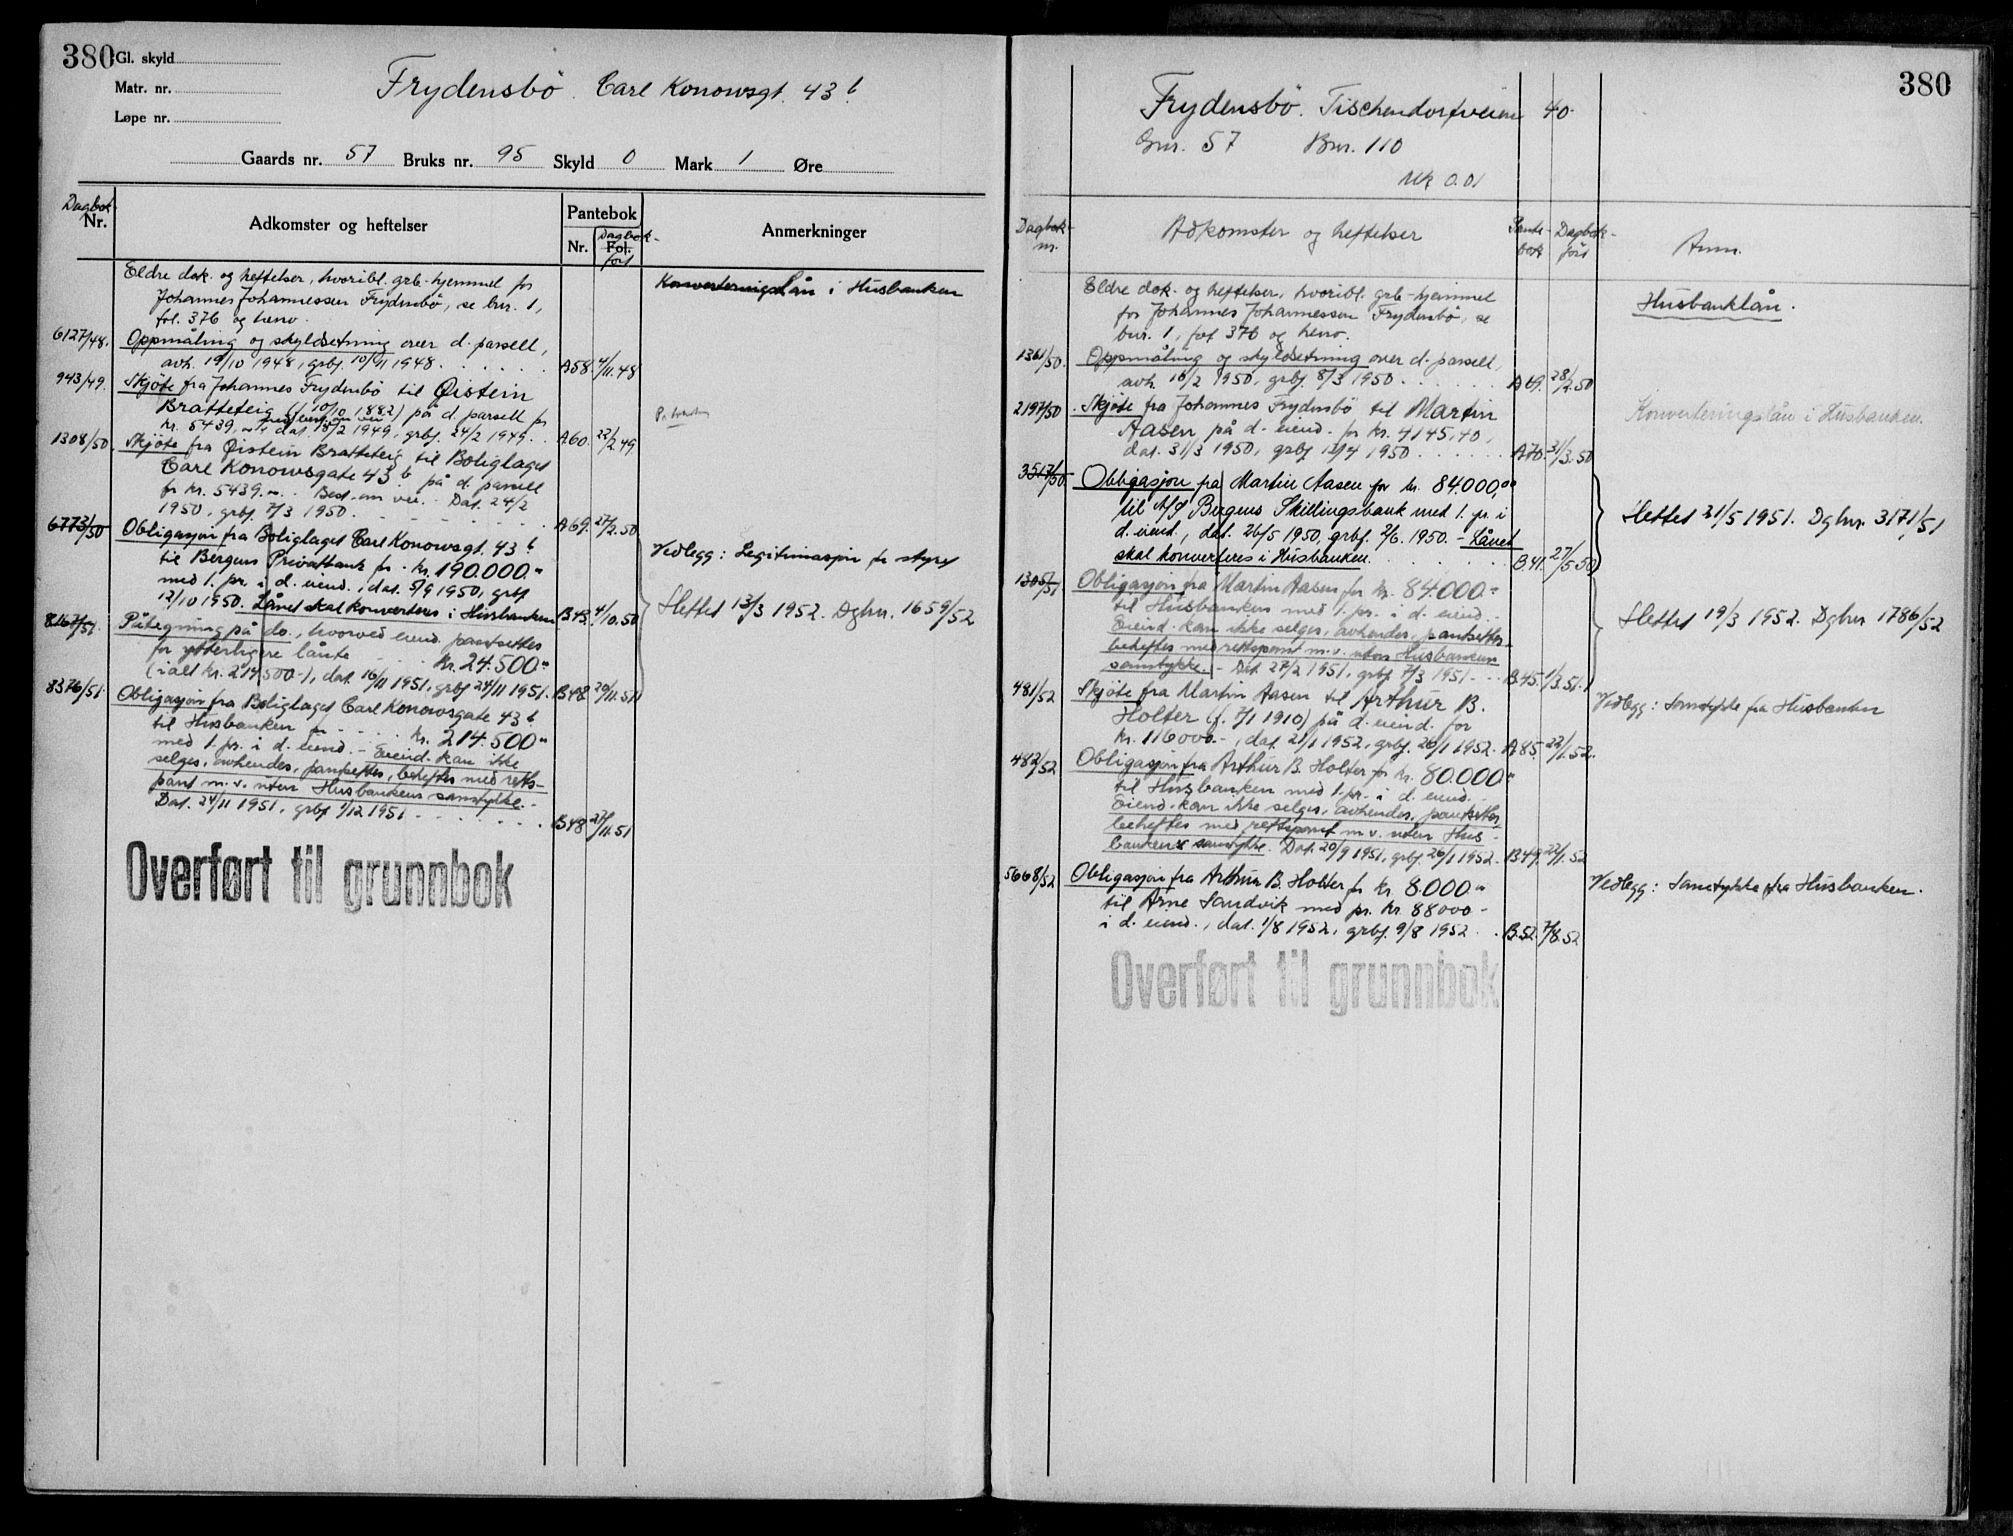 380
Gl. skyld
Matr. nr.
Løpe nr.
Frydensbö. Carl Konowsgt. 43 b
Gaards nr. 57 Bruks nr. 95 Skyld 0 Mark 1 Øre
Dagbok
Nr.
Adkomster og heftelser
Pantebok
Nr.
Dagbok-
Fol.
ført
Anmerkninger
Eldre dok. og heftelser, hvoribl. grb-hjemmel for
Johannes Johannessen Frydensbö, se bnr. 1,
fol. 376 og henv.
Konverteringslån i Husbanken
6127/48. Oppmåling og skyldsetning over d. parsell,
avh. 19/10 1948, grbf. 10/11 1948 . . . A58. 4/11.48
943/49. Skjöte fra Johannes Frydensbö til Øistein
Bratteteig (f. 10/10 1882) på d. parsell for
kr. 5439, dat. 18/2 1949, grbf. 24/2 1949. . A60. 22/2.49
1308/50. Skjöte fra Øistein Bratteteig til Boliglaget
Carl Konowsgate 43 b på d. parsell
for kr. 5439.- . Best. om vei. - Dat. 24/2
1950, grbf. 7/3 1950. A69. 27/2.50
6773/50 Obligasjon fra Boliglaget Carl Konowsgt. 43 b
til Bergens Privatbank for kr. 190.000.-
med 1. pr. i d. eiend., dat. 5/9 1950, grbf
12/10 1950. Lånet skal konverteres i Husbanken B43. 4/10.50
Vedlegg: Legitimasjon for styret
Slettet 13/3 1952. Dgbnr. 1659/52
8167/51. Påtegning på do., hvorved eiend. pantsettes
for ytterligere lånte kr. 24.500.-
(ialt kr. 214500-), dat. 16/11 1951, grbf 24/11 1951. B48. 20/11.51
8376/51. Obligasjon fra Boliglaget Carl Konowsgate 43 b
til Husbanken for . . . kr. 214.500.-
med 1. pr. i d. eiend. - Eiend. kan ikke
selges, avhendes, pantsettes, beheftes med retts-
pant m.v. uten Husbankens samtykke. -
Dat. 24/11 1951, grbf 1/12 1951 . . . B48 27/11.51
Overført til grunnbok
380
Frydensbö. Tischendorfveien 40.
Gnr. 57 Bnr. 110
Mk 0.01
Dagbok-
nr.
Adkomster og heftelser
Pante-
bok
Dagbok-
ført
Anm.
Eldre dok. og heftelser, hvoribl. grb-hjemmel
for Johannes Johannessen Frydensbö, se
bnr. 1, fol 376 og henv.
Husbanklån.
1361/50. Oppmåling og skyldsetning over d. parsell,
avh. 16/2 1950, grbf. 8/3 1950 . . . A69. 28/2.50
Konverteringslån i Husbanken.
2197/50. Skjöte fra Johannes Frydensbö til Martin
Aasen på d. eiend. for kr. 4145,40,
dat. 31/3 1950, grbf 12/4 1950 . . . A70. 31/3.50
3517/50 Obligasjon fra Martin Aasen for kr. 84.000,00
til A/S Bergens Skillingsbank med 1. pr. i
d. eiend., dat. 26/5 1950, grbf. 2/6. 1950. - Lånet
skal konverteres i Husbanken. . . . B.41. 27/5.50
Slettet 21/5 1951. Dgbnr. 3171/51
1305/51 Obligasjon fra Martin Aasen for kr. 84.000.-
til Husbanken med 1. pr. i d. eiend. .
Eiend. kan ikke selges, avhendes, pantsettes,
beheftes med rettspant m.v. uten Husbankens
samtykke. - Dat. 27/2 1951, grbf. 7/3 1951 - B.45. 1/3.51.
Slettet 19/3 1952. Dgbnr 1786/52
481/52 Skjöte fra Martin Aasen til Arthur B.
Holter (f. 7/1 1910) på d. eiend. for
kr. 116000.-, dat. 21/1 1952, grbf. 26/1 1952. A85. 22/1.52.
Vedlegg: Samtykke fra Husbanken
482/52 Obligasjon fra Arthur B. Holter for kr. 80.000.-
til Husbanken med 1. pr. i d. eiend.
Eiend. kan ikke selges, avhendes, pantsettes,
beheftes med rettspant m.v. uten Hus-
bankens samtykke. Dat. 20/9 1951, grbf. 26/1 1952. B49. 22/1.52
5668/52 Obligasjon fra Arthur B. Holter for kr. 8.000.-
til Arne Sandvik med pr. kr. 88000.-
i d. eiend., dat. 1/8 1952, grbf. 9/8 1952 . . B.52. 7/8.52
Vedlegg: Samtykke fra Husbanken.
Overført til grunnbok